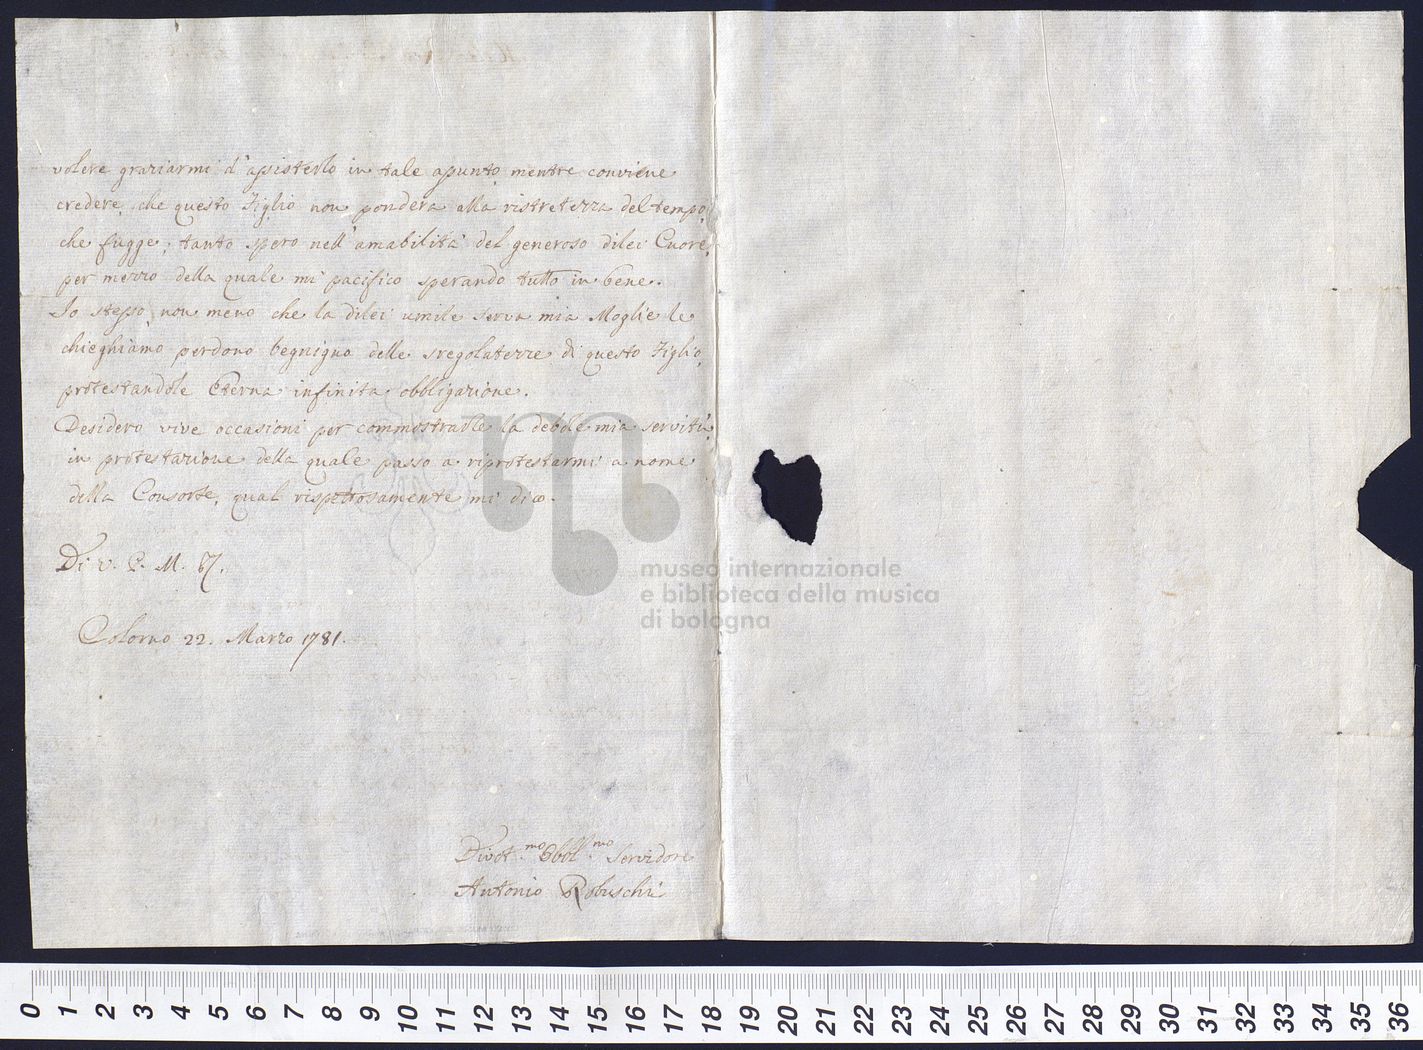 volere graziarmi d'assisterlo in tale apunto mentre conviene
credere, che questo Figlio non pondera alla ristretezza del tempo,
che fugge; tanto spero nell'amabilità del generoso dilei Cuore,
per mezzo della quale mi pacifico sperando tutto in bene.
Io stesso, non meno che la dilei umile serva mia Moglie le
chieghiamo perdono begnigno delle sregolatezze di questo Figlio,
protestandole Eterna infinita obbligazione.
Desidero vive occasioni per commostrarle la debole mia servitù,
in protestazione della quale passo a riprotestarmi a nome
della Consorte, qual rispetosamente mi dico.
Di V. P. M. R.
Colorno 22. Marzo 1781.
Divot.mo Obbl.mo Servidore
Antonio Robuschi
museo internazionale
e biblioteca della musica
di bologna
0 1 2 3 4 5 6 7 8 9 10 11 12 13 14 15 16 17 18 19 20 21 22 23 24 25 26 27 28 29 30 31 32 33 34 35 36